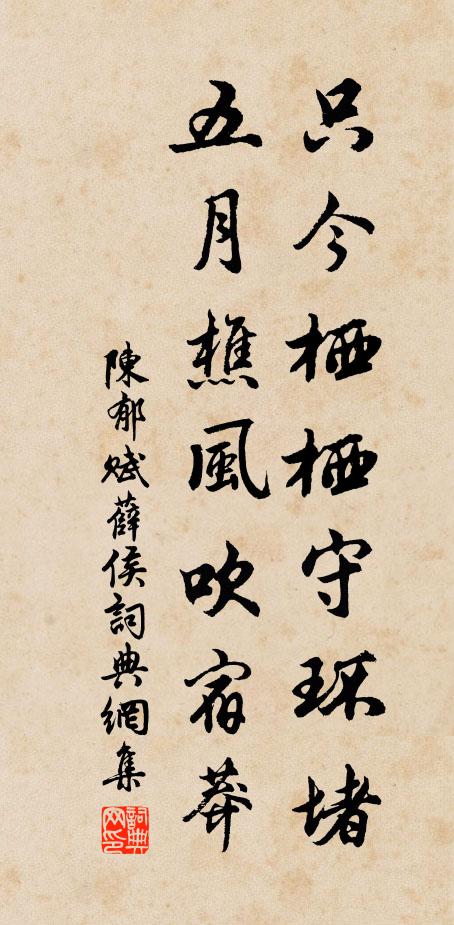 只今栖栖守环堵
五月樵風吹宿莽
陳郁賦薛侯詞典網集
詞典网印